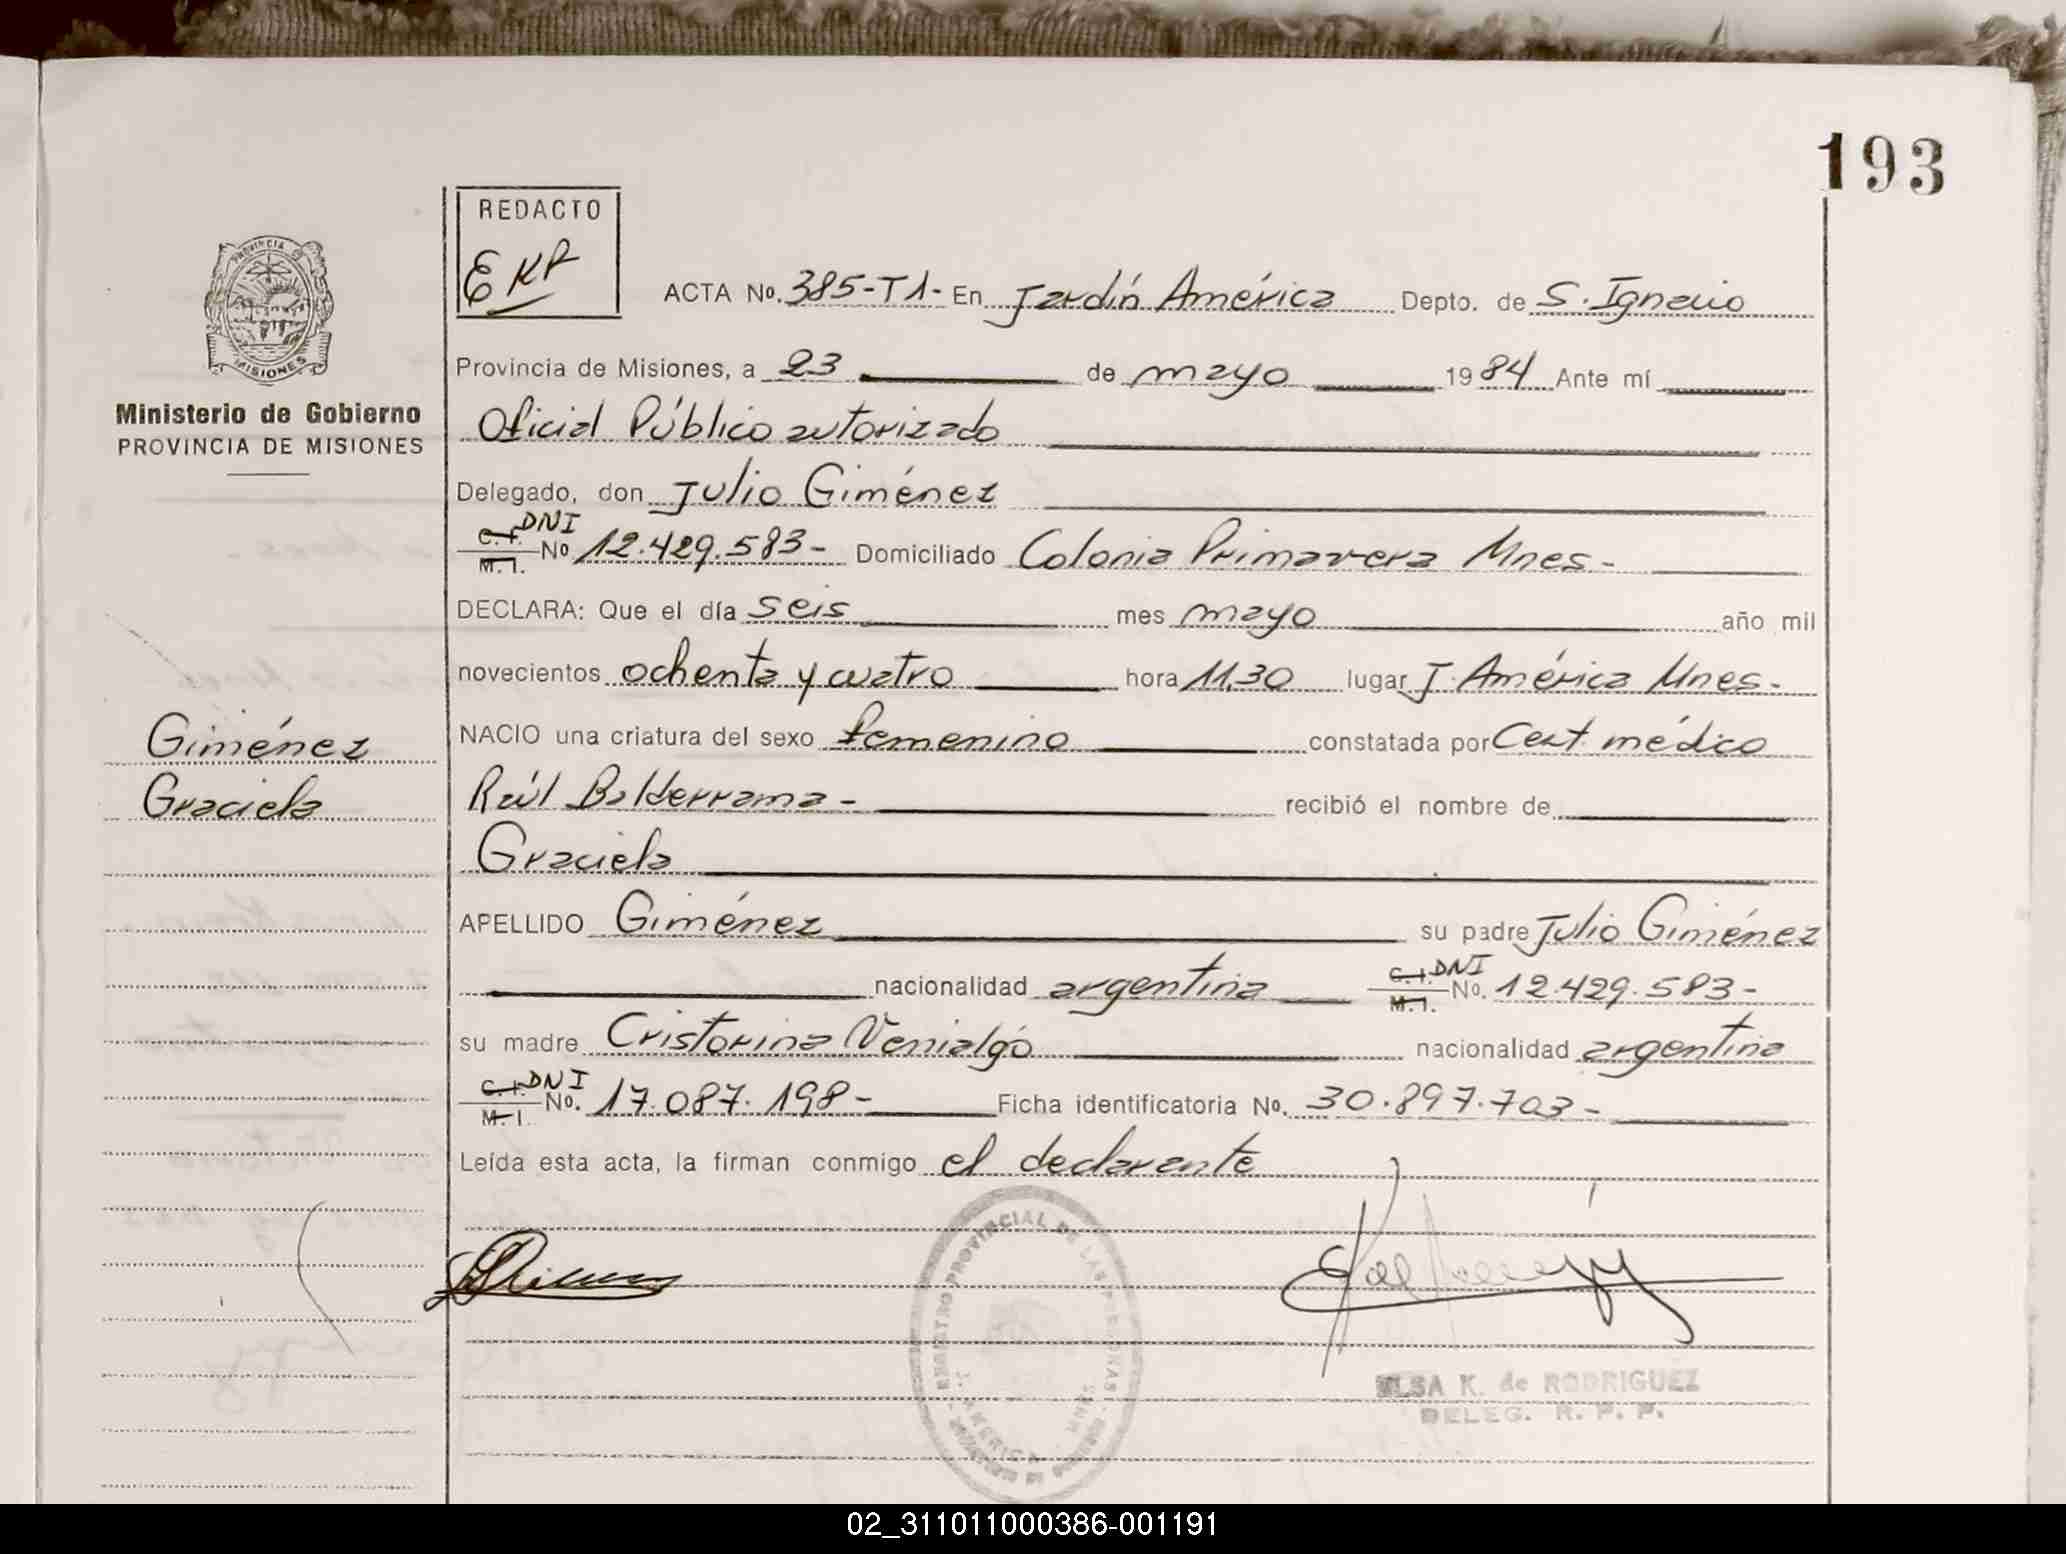 193
REDACTO
EKR
ACTA No. 385-T1- En Jardín América Depto. de S. Ignacio
PROVINCIA DE
MISIONES
Provincia de Misiones, a 23 de mayo 1984 Ante mí
Ministerio de Gobierno
PROVINCIA DE MISIONES
Oficial Público autorizado
Delegado, don Julio Giménez
C.I. DNI
M.I. No 12.429.583- Domiciliado Colonia Primavera Mnes-
DECLARA: Que el día seis mes mayo año mil
novecientos ochenta y cuatro hora 11,30 lugar J. América Mnes-
Giménez
Graciela
NACIO una criatura del sexo femenino constatada por Cert. médico
Raúl Balderrama- recibió el nombre de
Graciela
APELLIDO Giménez su padre Julio Giménez
nacionalidad argentina C.I. DNI M.I. No. 12.429.583-
su madre Cristorina Venialgo nacionalidad argentina
C.I. DNI
M.I. No. 17.087.198- Ficha identificatoria No. 30.897.703-
Leída esta acta, la firman conmigo el declarante
REGISTRO PROVINCIAL DE LAS PERSONAS
J. AMERICA MNES
ELSA K. de RODRIGUEZ
DELEG. R. P. P.
02_311011000386-001191